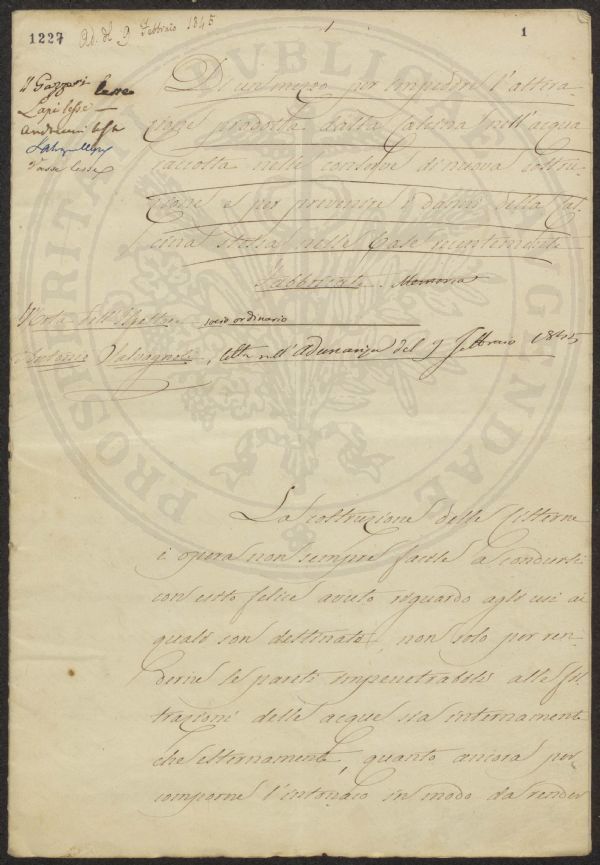 1227
Ad. de 9 Febbraio 1845
1
1
Gazzeri lesse
Lapi lesse
Andreini lesse
lesse
Di un mezzo per impedire l'altera
zione prodotta dalla calcina nell'acqua
raccolta nelle conserve di nuova costru-
zione e per prevenire i danni della cal
cina stessa nelle case recentemente
fabbricate. Memoria
socio ordinario
Antonio Salvagnoli, letta nell'adunanza del 9 febbraio 1845
La costruzione delle Cisterne
è opera non sempre facile a condursi
con esito felice avuto riguardo agli usi ai
quali son destinate, non solo per ren
derne le pareti impenetrabili alle fil
trazioni delle acque sia internamente
che esternamente, quanto ancora per
comporne l'intonaco in modo da render
PROSPERITATI PUBLICAE AUGENDAE